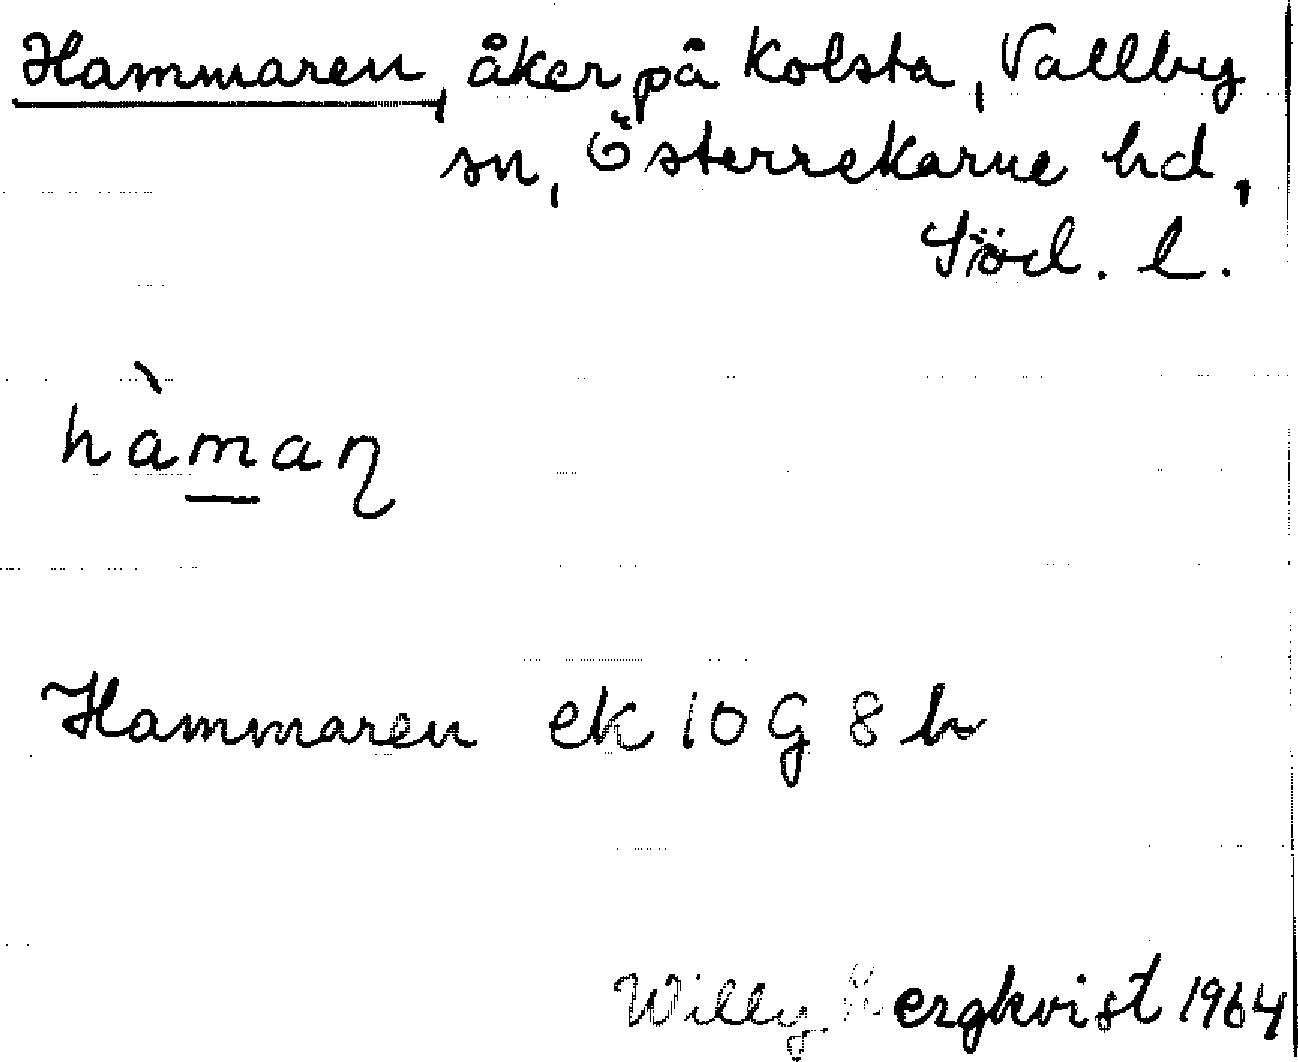 Hammaren, åker på Kolsta, Vallby
sn, Österrekarne hd,
Söd. l.
hàmaɳ
Hammaren ek 10 G 8 h
Willy Bergkvist 1964